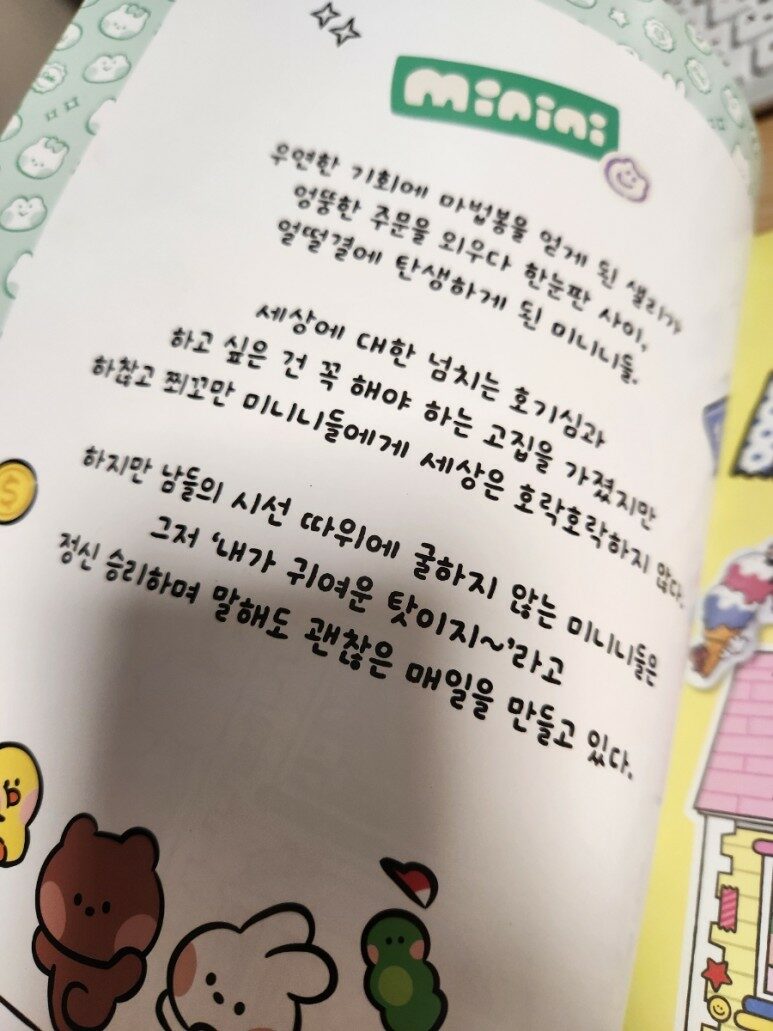 minini
우연한 기회에 마법봉을 얻게 된 샐리가
엉뚱한 주문을 외우다 한눈판 사이,
얼떨결에 탄생하게 된 미니니들.
세상에 대한 넘치는 호기심과
하고 싶은 건 꼭 해야 하는 고집을 가졌지만
하찮고 쬐꼬만 미니니들에게 세상은 호락호락하지 않다.
하지만 남들의 시선 따위에 굴하지 않는 미니니들은
그저 ‘내가 귀여운 탓이지~’라고
정신 승리하며 말해도 괜찮은 매일을 만들고 있다.